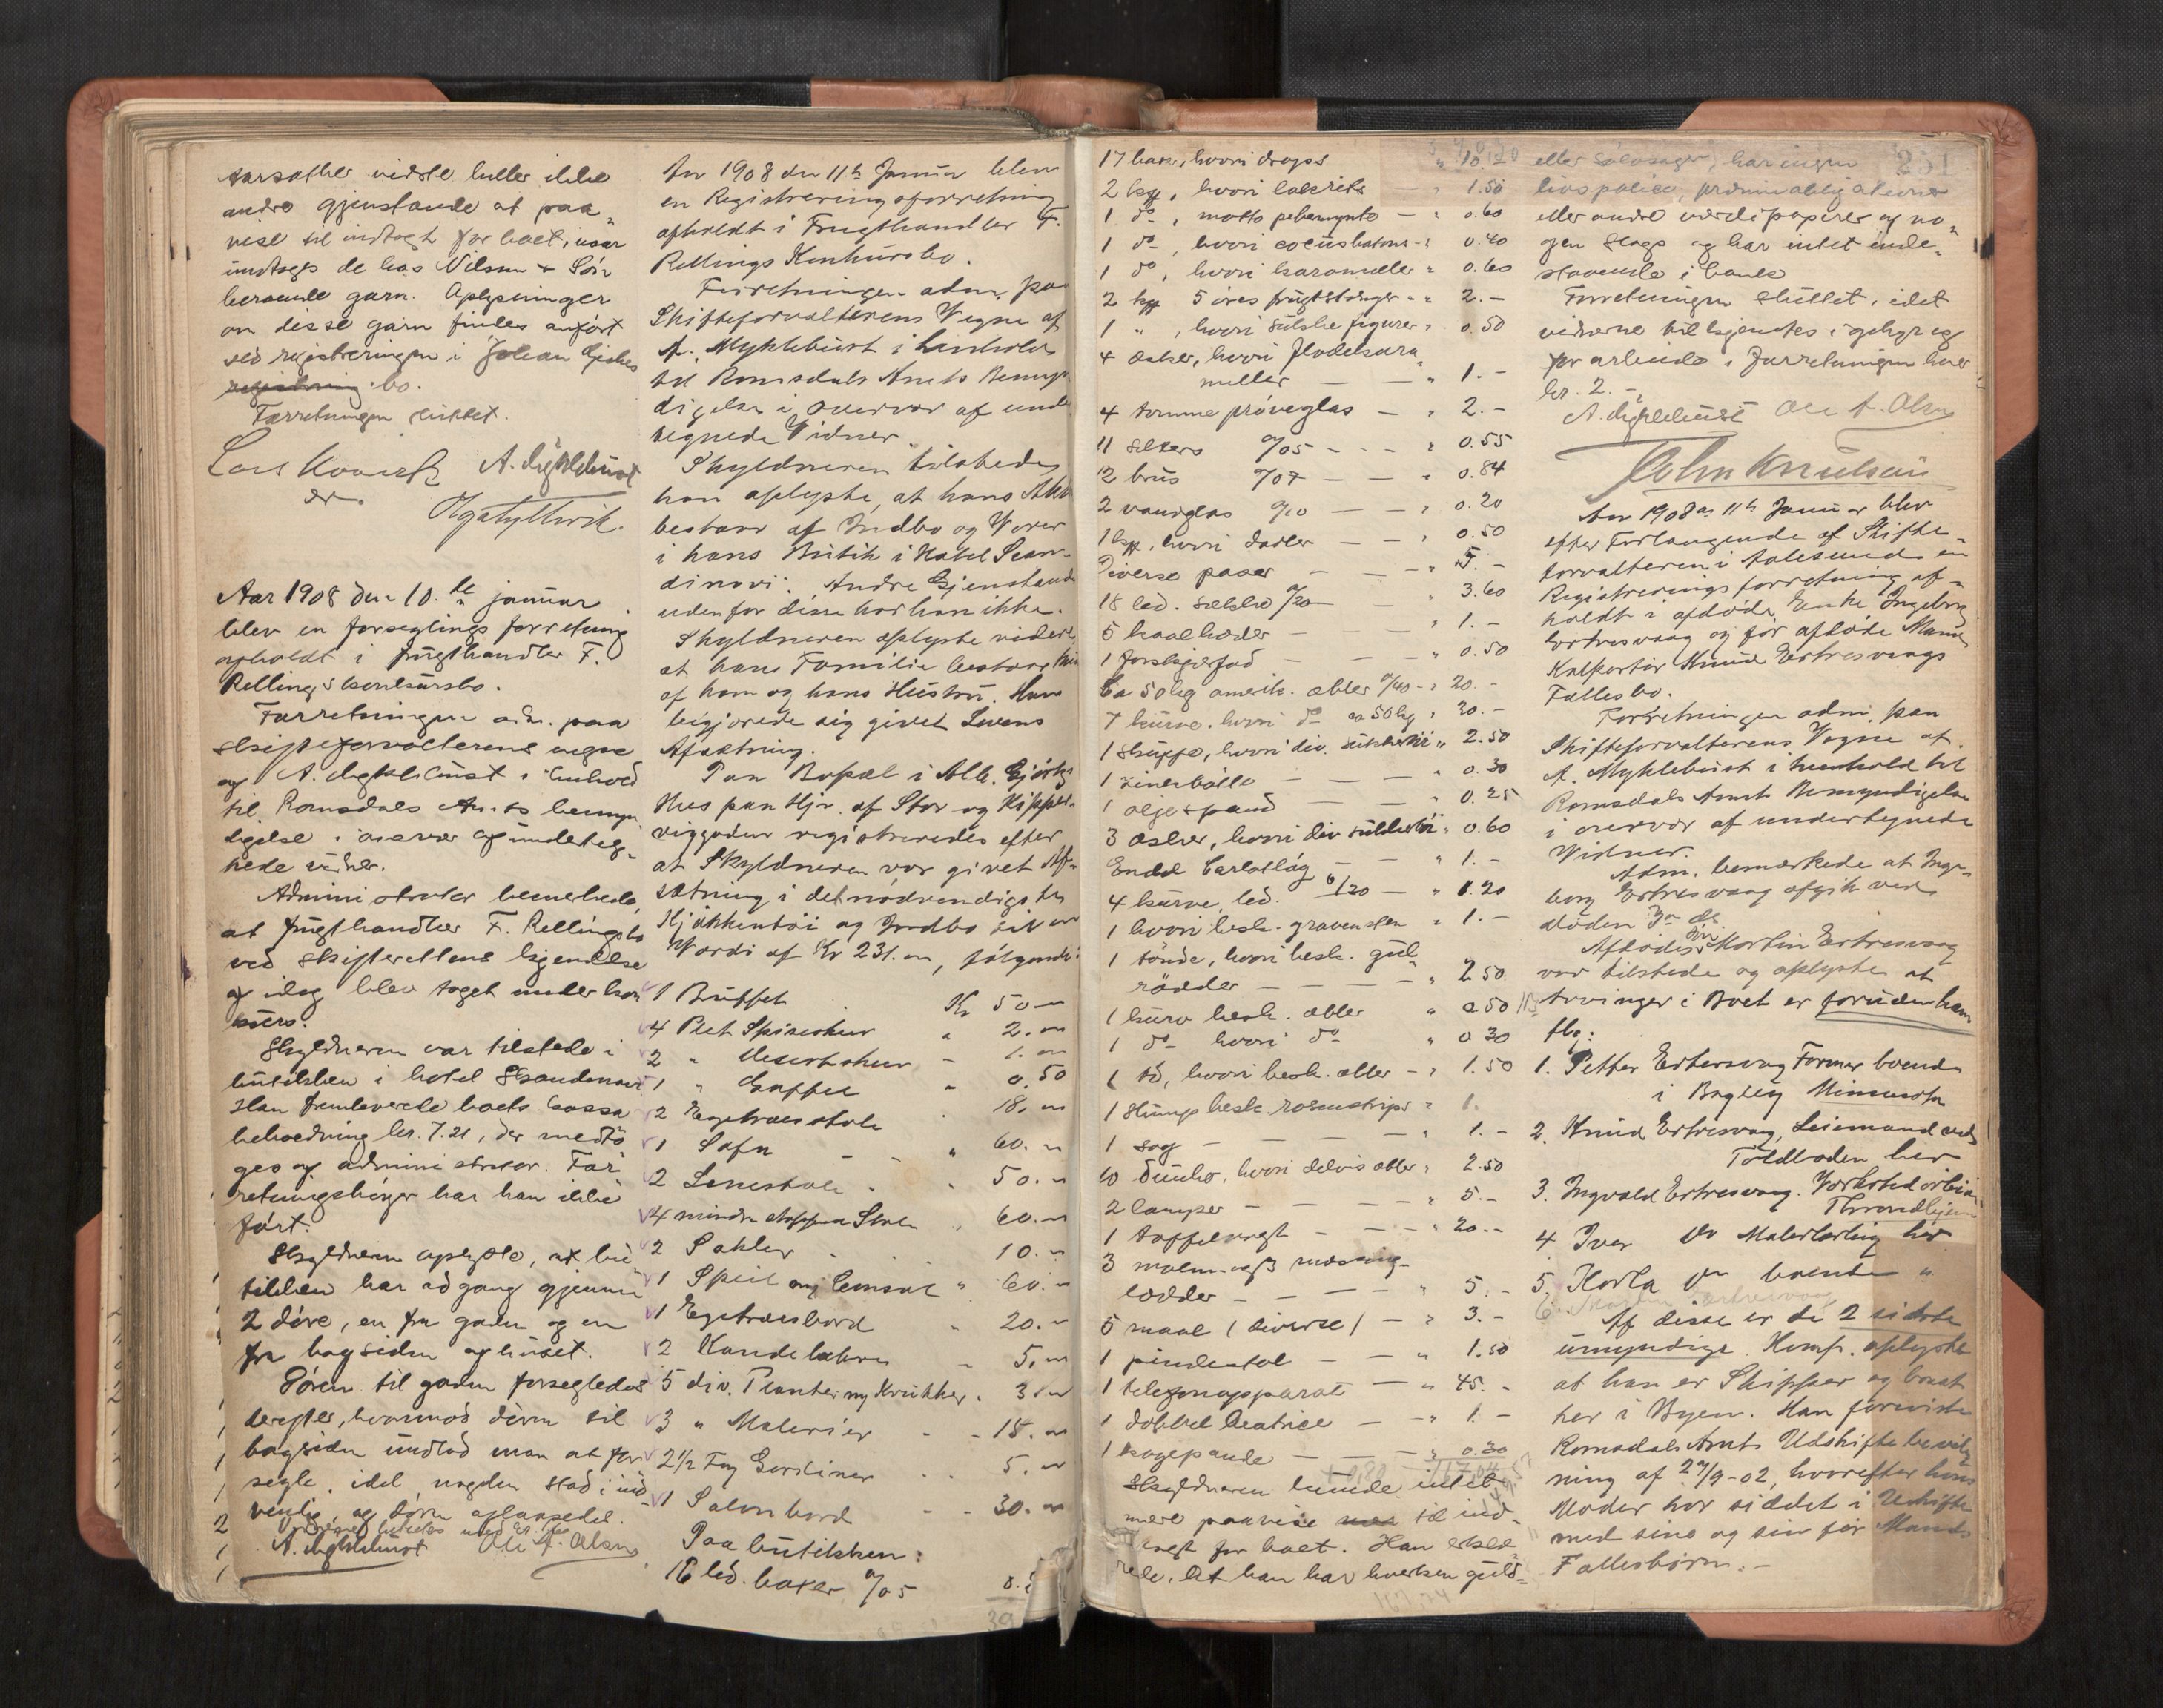 aarsather vidste heller ikke
andre gjenstande at paa-
vise til indtægt for boet, naar
undtages de hos Nilsen & Søn
beroende garn. Oplysninger
om disse garn findes anført
ved registreringen i Johan
bo.
Forretningen sluttet.
A. Myklebust
Aar 1908 den 10. de januar
blev en forseglings forretning
afholdt i frugthandler F.
Rellings konkursbo.
Forretningen adm. paa
skifteforvalterens vegne
af A. Myklebust i henhold
til Romsdals Amts bemyn
digelse i overvær af underteg-
nede vidner.
Administrator bemerkede,
at frugthandler F. Rellings bo
ved skifterettens kjendelse
af idag blev taget under kon
kurs.
Skyldneren var tilstede i
butikken i hotel Skandinavi
Han fremleverede boets kassa
beholdning kr. 7.21, der medto
ges af administrator. For
retningsbøger har han ikke
ført.
Skyldneren oplyste, at bu
tikken har adgang gjennem
2 døre, en fra gaden og en
fra bagsiden af huset.
Døren til gaden forsegledes
derefter, hvorimod døren til
bagsiden undlod man at for
segle, idet nøglen stod i ind
vendig, og døren aflaasedes.
A. Myklebust Ole A. Olsen
Aar 1908 den 11te Januar blev
en Registreringsforretning
afholdt i Frugthandler F.
Rellings Konkursbo.
Forretningen adm. paa
Skifteforvalterens Vegne af
A. Myklebust i henhold
til Romsdals Amts Bemyn
digelse i overvær af under
tegnede Vidner.
Skyldneren tilstede
han oplyste, at hans Aktiva
bestaar af Indbo og Varer
i hans Butik i Hotel Scan-
dinavi. Andre Gjenstande
udenfor disse har han ikke.
Skyldneren oplyste videre
at hans Familie bestaar kun
af ham og hans Hustru. Han
begjærede sig givet Lovens
Afsætning.
Paa Bopæl i Alb. Gjørtz
Hus paa Hjr. af Stor og Kipper-
viggaden registreredes efter
at Skyldneren var givet Af-
sætning i det nødvendigste
Kjøkkentøi og Indbo til en
Værdi af Kr 231.00, følgende:
1 Buffet Kr 50 00
4 Plet Spiseskeer " 2. 00
2 " Desertskeer - 1. 00
1 " Gaffel " 0,50
2 Egetræesstole 18. 00
1 Sofa " 60. 00
2 Lenestole " 50. 00
4 mindre stoppede Stole " 60. 00
2 Sokler 10. 00
1 Speil m/ Consol " 60. 00
1 Egetræesbord 20. 00
2 Kandelabre 5. 00
5 div. Planter m/ Krukker 3 00
3 " Malerier 15. 00
2½ Fag Gardiner 5. 00
1 Salonbord 30. 00
Paa butikken:
16 led. kasser a/05 0.8
39
251
17 kasser, hvori drops " 10.20
2 kss, hvori lakrits " 1.50
1 do, motto pebermynte — " 0.60
1 do, hvori cocusbatons " 0.40
1 do, hvori karameller " 0.60
2 kss 5 øres frugtstænger " 2.-
1 ", hvori sukkerfigurer " 0.50
4 æsker, hvori flødekara
meller — — " 1.-
4 tomme prøveglas — " 2.-
11 selters a/05 - - - " 0.55
12 brus a/07 — — " 0.84
2 vandglas a/10 — — " 0.20
1 kss. hvori dadler — — " 0.50
Diverse poser — — " 5.-
18 led. sække a/20 — " 3.60
5 kaalhoder — — " 1.-
1 forskjærfad — — " 0.50
Ca 50 kg amerik. æbler a/40 " 20.-
7 kurve. hvori do ca 50 kg " 20.-
1 skuffe, hvori div. sukkertøi " 2.50
1 zinkbøtte — — " 0.30
1 olgespand — — " 0.25
3 æsker, hvori div sukkertøi " 0.60
Endel — — " 1.-
4 kurve, led. a/30 — " 1.20
1 hvori besk. gravensten " 1.-
1 tønde, hvori besk. gul
rødder — — — " 2.50
1 kurv besk. æbler " 0.50
1 do hvori do " 0.30
1 td, hvori besk. æbler — " 1.50
1 slump besk. " 1.
1 sag — — — " 1.-
10 dunke, hvori delvis æbler " 2.50
2 lamper — — — " 5.-
1 taffelvægt — — " 20.-
3 malm og 3 messing-
lodder — — — " 5.-
5 maal (diverse) — " 3.-
1 pindestol — — " 1.50
1 telefonapparat — " 45.-
1 dobbel beatrice — " 1.-
1 kogepande — — " 0.30
Skyldneren kunde intet
mere paavise til ind-
tægt for boet. Han erklæ
rede, at han har hverken guld-
eller sølvsager, har ingen
livspolice, præmieobligationer
eller andre værdipapirer af no
gen slags og har intet inde-
staaende i bank
Forretningen sluttet, idet
vidnerne tilkjendtes i gebyr og
for arbeide i forretningen hver
kr. 2.-
A. Myklebust Ole A. Olsen
John Knutsen
Aar 1908 den 11te Januar blev
efter Forlangende af Skifte-
forvalteren i Aalesund en
Registreringsforretning af-
holdt i afdøde Enke Ingeborg
Ertresvaag og før afdøde Mand
Kolportør Knud Ertresvaags
Fællesbo.
Forretningen adm. paa
Skifteforvalterens Vegne af
A. Myklebust i henhold til
Romsdals Amts Bemyndigelse
i overvær af undertegnede
Vidner.
Adm. bemærkede at Inge-
borg Ertresvaag afgik ved
døden 3die ds
Afdødes Søn Martin Ertresvaag
var tilstede og oplyste at
Arvinger i Boet er foruden ham
flg:
1. Petter Ertresvaag Farmer boende
i Bagley Minnesota
2. Knud Ertresvaag, Leiemand ved
Toldboden her
3. Ingvald Ertresvaag. Værkstedarbeider
Throndhjem
4 Iver do Malerlærling her
5. Karla do boende "
6. Martin Ertresvaag
Af disse er de 2 sidste
umyndige. Komp. oplyste
at han er Skipper og bosat
her i Byen. Han foreviste
Romsdals Amts Udskiftebevilg
ning af 27/9-02, hvorefter hans
Moder har siddet i Uskifte
med sine og sin før Mands
Fællesbørn.-